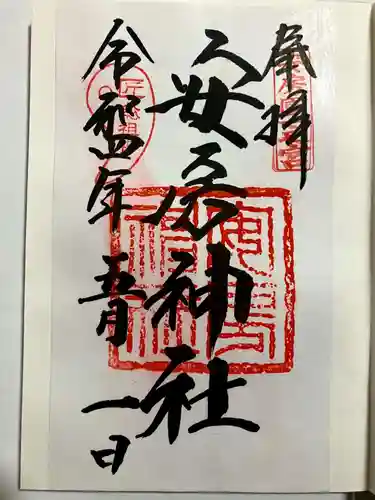 奉拝
安房神社
令和四年五月一日